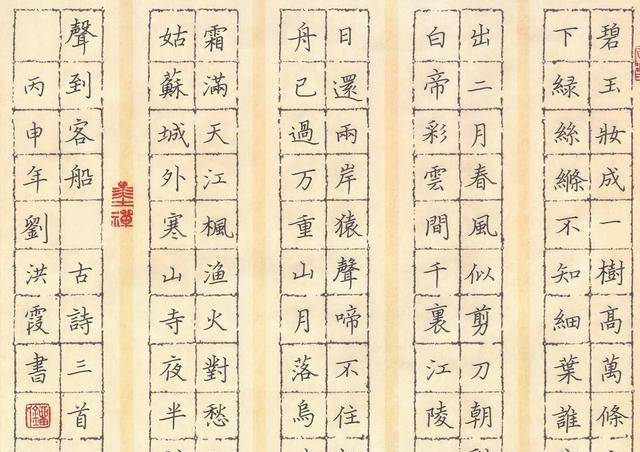 碧玉妝成一樹高萬條
下綠絲縧不知細葉誰
出二月春風似剪刀朝
白帝彩雲間千裏江陵
日還兩岸猿聲啼不住
舟已過万重山月落烏
霜滿天江楓漁火對愁
姑蘇城外寒山寺夜半
聲到客船 古詩三首
丙申年劉洪霞書